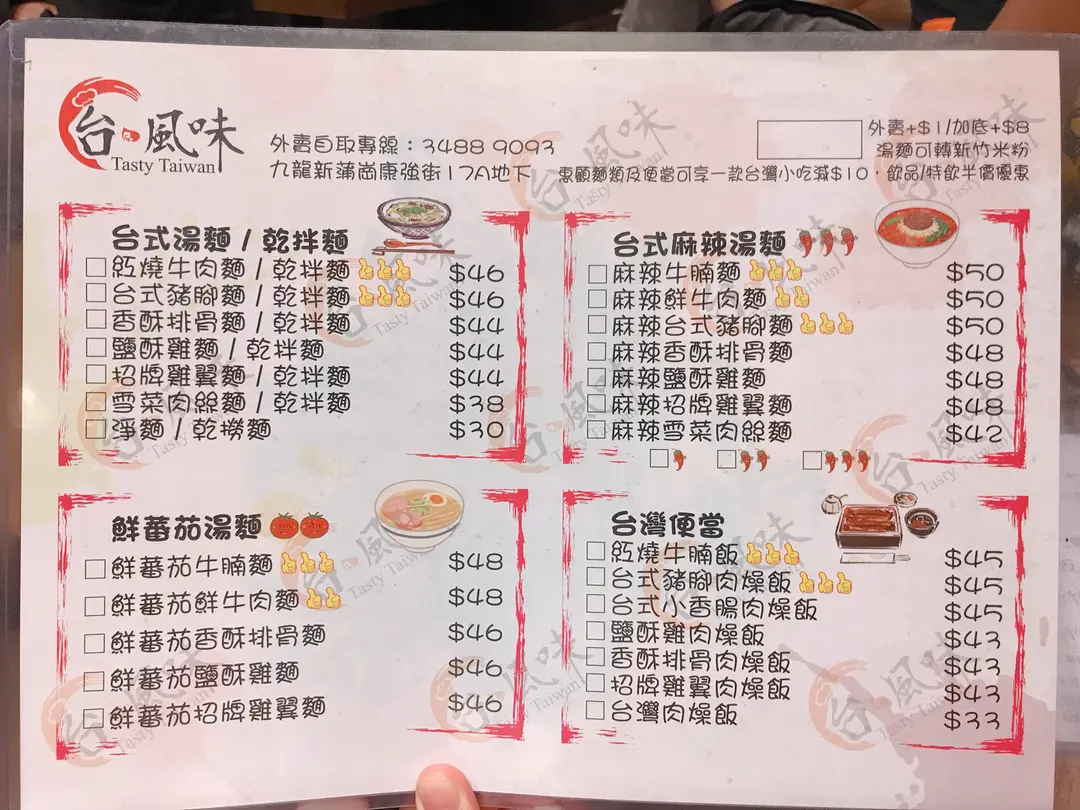 台風味
Tasty Taiwan
外賣自取專線：3488 9093
九龍新蒲崗康強街17A地下
外賣+$1/加底+$8
湯麵可轉新竹米粉
惠顧麵類及便當可享一款台灣小吃減$10，飲品/特飲半價優惠
台式湯麵 / 乾拌麵
紅燒牛肉麵 / 乾拌麵 $46
台式豬腳麵 / 乾拌麵 $46
香酥排骨麵 / 乾拌麵 $44
鹽酥雞麵 / 乾拌麵 $44
招牌雞翼麵 / 乾拌麵 $44
雪菜肉絲麵 / 乾拌麵 $38
淨麵 / 乾撈麵 $30
台式麻辣湯麵
麻辣牛腩麵 $50
麻辣鮮牛肉麵 $50
麻辣台式豬腳麵 $50
麻辣香酥排骨麵 $48
麻辣鹽酥雞麵 $48
麻辣招牌雞翼麵 $48
麻辣雪菜肉絲麵 $42
鮮蕃茄湯麵
鮮蕃茄牛腩麵 $48
鮮蕃茄鮮牛肉麵 $48
鮮蕃茄香酥排骨麵 $46
鮮蕃茄鹽酥雞麵 $46
鮮蕃茄招牌雞翼麵 $46
台灣便當
紅燒牛腩飯 $45
台式豬腳肉燥飯 $45
台式小香腸肉燥飯 $45
鹽酥雞肉燥飯 $43
香酥排骨肉燥飯 $43
招牌雞翼肉燥飯 $43
台灣肉燥飯 $33